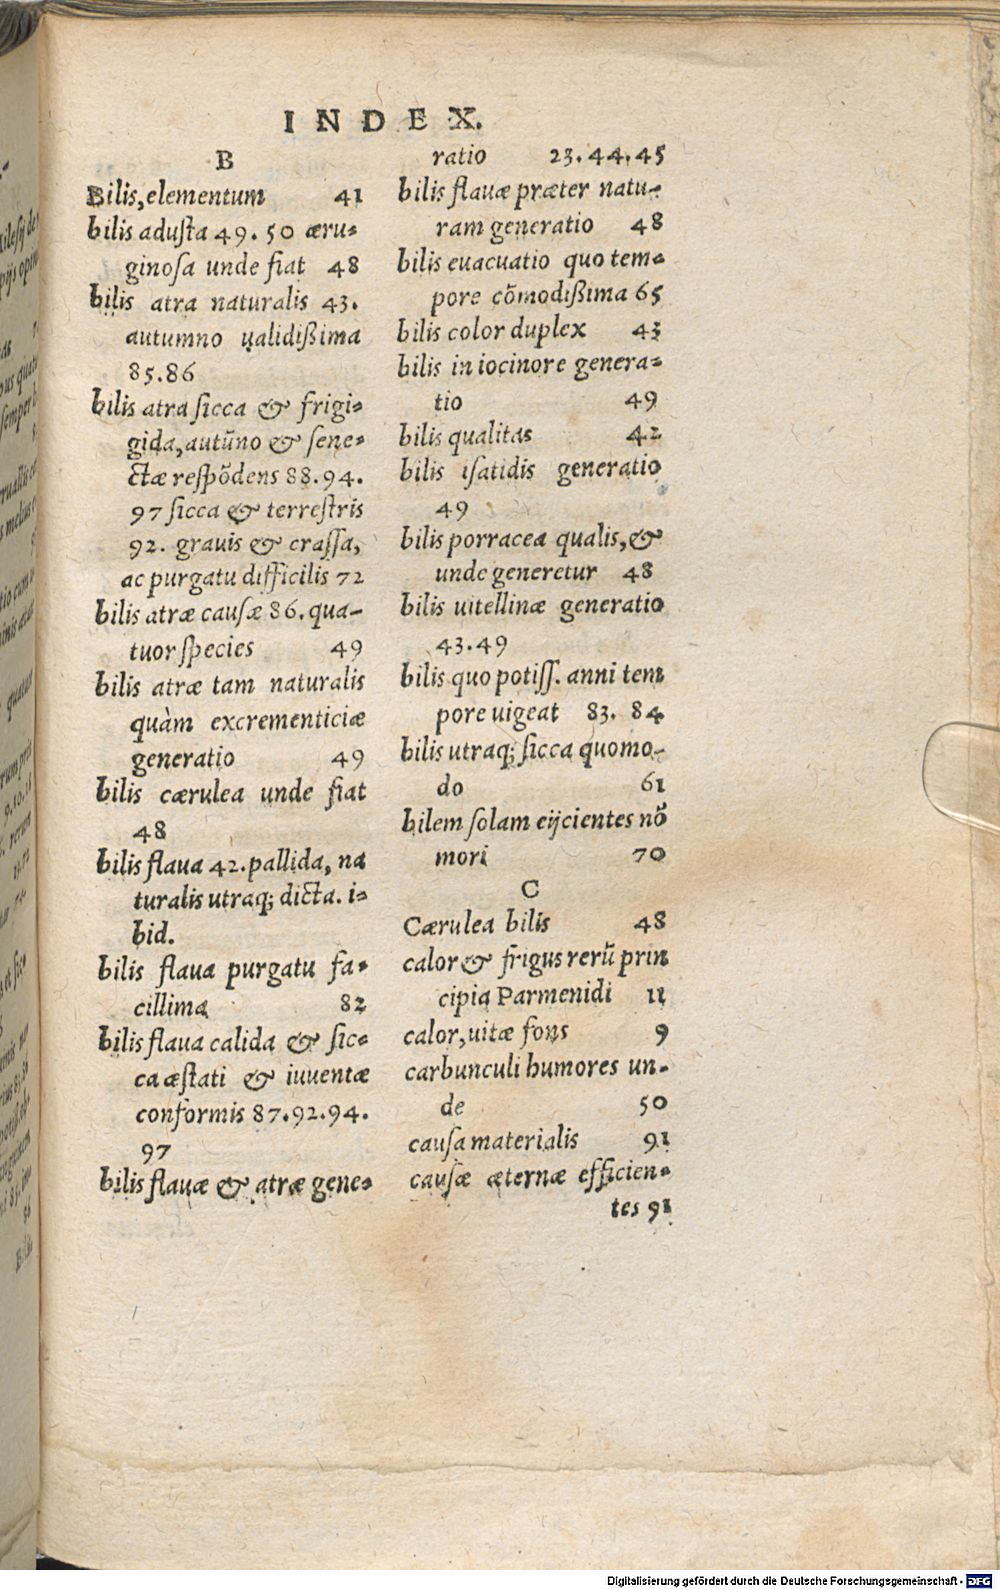 INDEX.
B
Bilis, elementum 41
bilis adusta 49. 50 æru-
ginosa unde fiat 48
bilis atra naturalis 43.
autumno ualidißima
85.86
bilis atra sicca & frigi-
gida, autũno & sene-
ctæ respõdens 88.94.
97 sicca & terrestris
92. grauis & crassa,
ac purgatu difficilis 72
bilis atræ causæ 86. qua-
tuor species 49
bilis atræ tam naturalis
quàm excrementiciæ
generatio 49
bilis cærulea unde fiat
48
bilis flaua 42. pallida, na
turalis utraq; dicta. i-
bid.
bilis flaua purgatu fa-
cillima 82
bilis flaua calida & sic-
ca æstati & iuuentæ
conformis 87.92.94.
97
bilis flauæ & atræ gene-
ratio 23.44.45
bilis flauæ præter natu-
ram generatio 48
bilis euacuatio quo tem-
pore cõmodißima 65
bilis color duplex 43
bilis in iocinore genera-
tio 49
bilis qualitas 42
bilis isatidis generatio
49
bilis porracea qualis, &
unde generetur 48
bilis uitellinæ generatio
43.49
bilis quo potiss. anni tem
pore uigeat 83. 84
bilis utraq; sicca quomo-
do 61
bilem solam eijcientes nõ
mori 70
C
Cærulea bilis 48
calor & frigus rerũ prin
cipia Parmenidi 11
calor, uitæ fons 9
carbunculi humores un-
de 50
causa materialis 91
causæ æternæ efficien-
tes 91
Digitalisierung gefördert durch die Deutsche Forschungsgemeinschaft - DFG